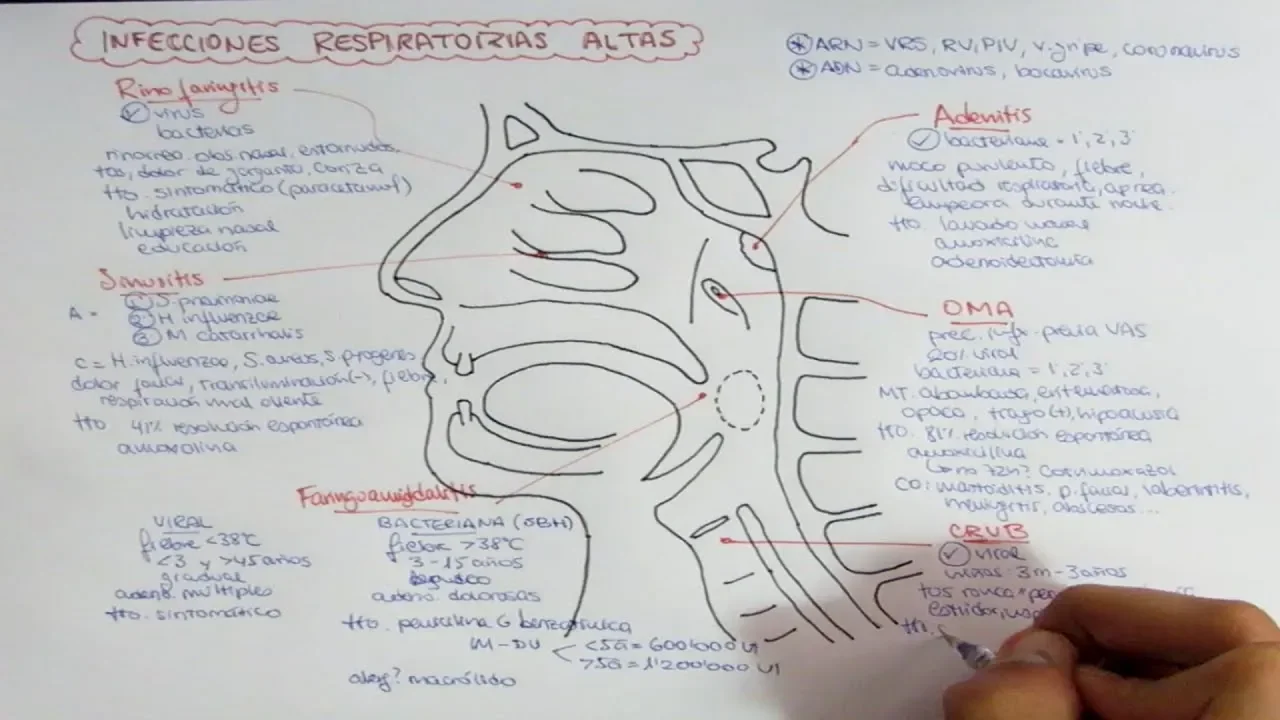 INFECCIONES RESPIRATORIAS ALTAS
* ARN = VRS, RV, PIV, v. gripe, coronavirus
* ADN = adenovirus, bocavirus
Rinofaringitis
✓ virus
bacterias
rinorrea, obs. nasal, estornudos,
tos, dolor de garganta, coriza
tto. sintomático (paracetamol)
hidratación
limpieza nasal
educación
Sinusitis
A =
1 S. pneumoniae
2 H influenzae
3 M catarrhalis
C = H. influenzae, S. aureus, S. pyogenes
dolor facial, transiluminación (-), fiebre,
respiración mal oliente
tto 41% resolución espontánea
amoxicilina
Faringoamigdalitis
VIRAL
fiebre <38°C
<3 y >45 años
gradual
aden. múltiples
tto. sintomático
BACTERIANA (SBH)
fiebre >38°C
3-15 años
adeno. dolorosas
tto. penicilina G benzatínica
IM-DU
<5a = 600'000 UI
>5a = 1'200'000 UI
alerg? macrólido
Adenitis
✓ bacteriana = 1', 2', 3'
moco purulento, fiebre,
dificultad respiratoria, apnea.
empeora durante noche.
tto. lavado nasal
amoxicilina
adenoidectomía
OMA
prec. infx. previa VAS
20% viral
bacteriana = 1', 2', 3'
MT. abombada, eritematosa,
opaca, trago (+), hipoacusia
tto. 81% resolución espontánea
amoxicilina
no 72h? Cotrimoxazol
CO: mastoiditis. p. facial, laberintitis,
meningitis, abscesos...
CRUB
✓ viral
niños: 3m-3años
tos ronca
estridor,
tto.